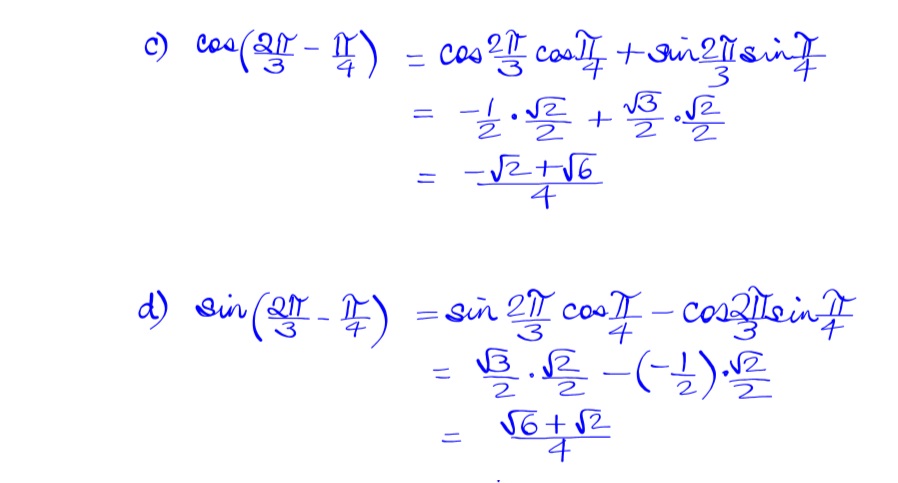 c) cos(2π/3 - π/4) = cos 2π/3 cos π/4 + sin 2π/3 sin π/4
= -1/2 · √2/2 + √3/2 · √2/2
= (-√2 + √6)/4
d) sin(2π/3 - π/4) = sin 2π/3 cos π/4 - cos 2π/3 sin π/4
= √3/2 · √2/2 - (-1/2) · √2/2
= (√6 + √2)/4